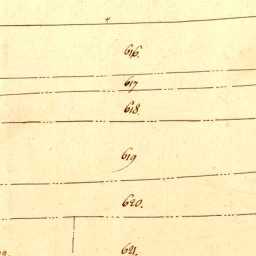 616.
617
618.
619
620.
621.